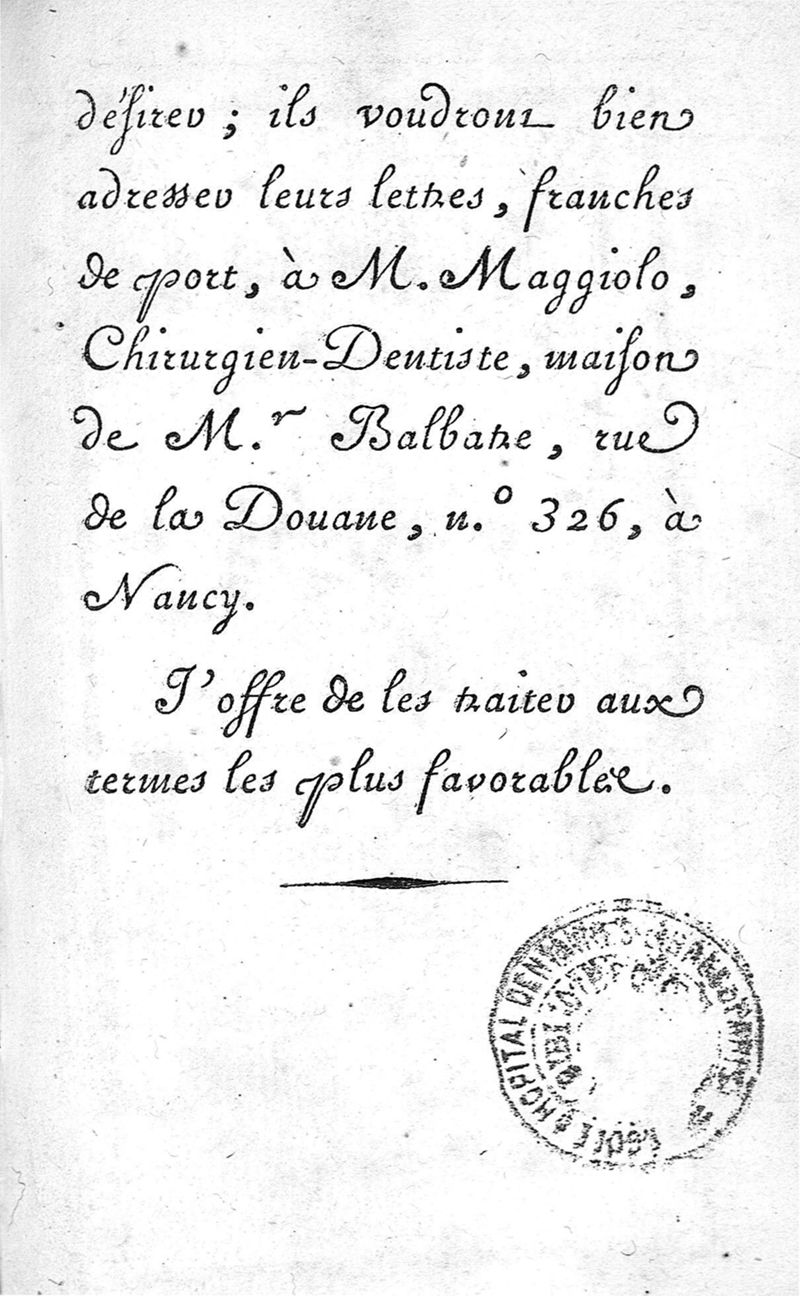 désirer ; ils voudront bien
adresser leurs lettres, franches
de port, à M. Maggiolo,
Chirurgien-Dentiste, maison
de M.r Balbatre, rue
de la Douane, n.o 326, à
Nancy.
J'offre de les traiter aux
termes les plus favorables.
HOPITAL DENTAIRE